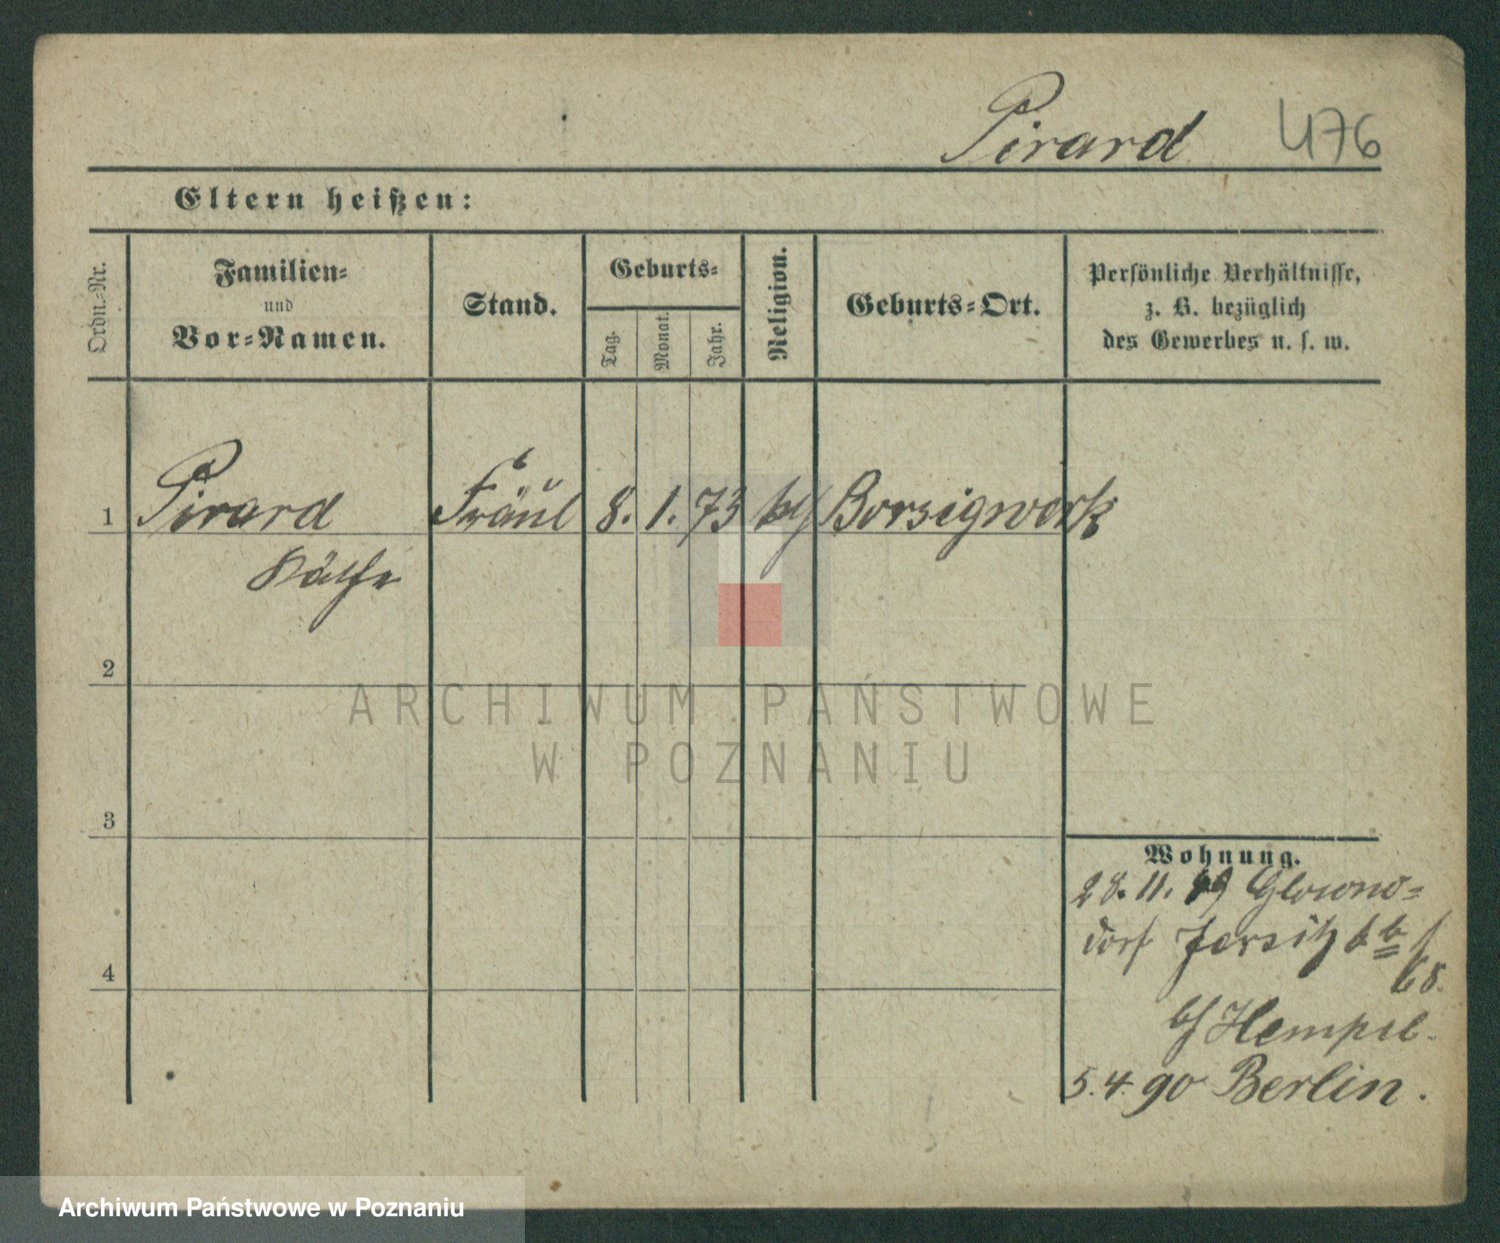 Pirard 476
Eltern heißen:
Ordn.-Nr.
Familien-
und
Vor-Namen.
Stand.
Geburts-
Tag.
Monat.
Jahr.
Religion.
Geburts-Ort.
Persönliche Verhältnisse,
z. B. bezüglich
des Gewerbes u. s. w.
1 Pirard Fräul 8. 1. 73 Borsigwerk
Käthe
2
3
4
Wohnung.
28. 11. 89 Glowno-
dorf Jersitz
68.
Hempel.
5. 4. 90 Berlin.
ARCHIWUM PAŃSTWOWE
W POZNANIU
Archiwum Państwowe w Poznaniu